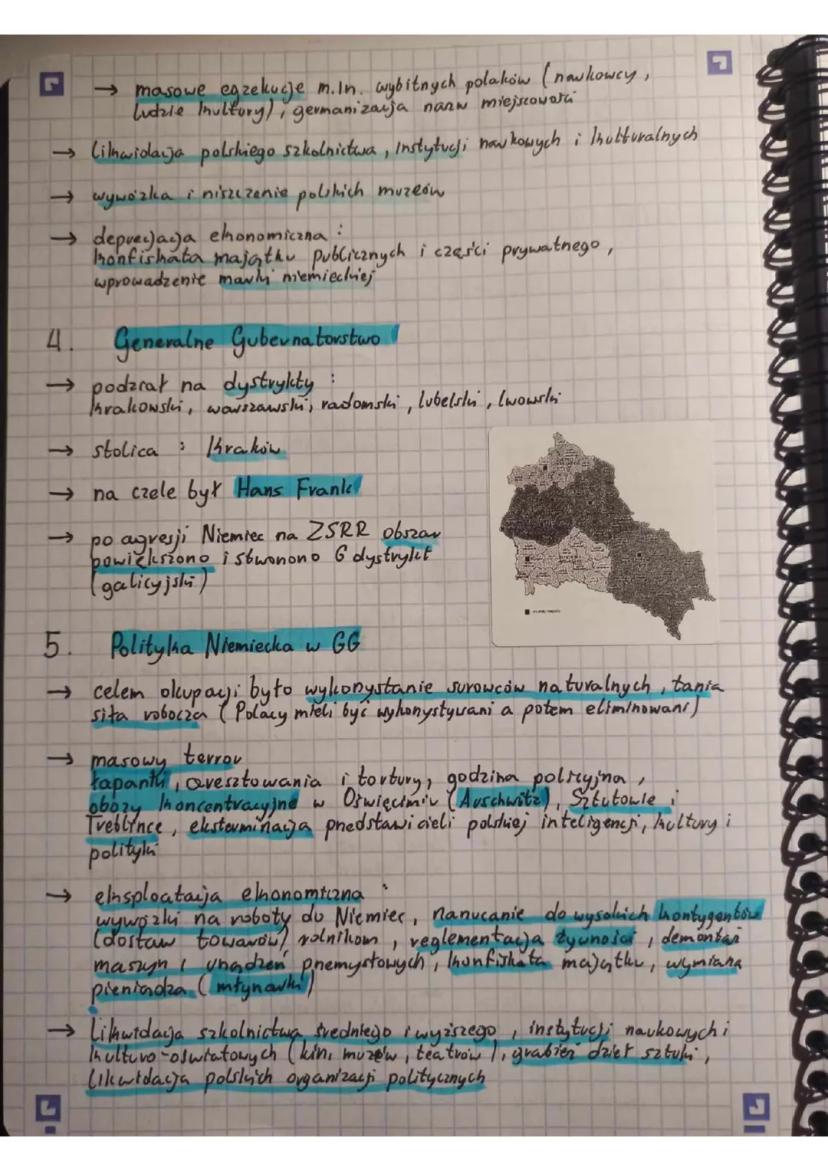 → masowe egzekucje m.in. wybitnych polaków (naukowcy,
ludzie kultury), germanizacja nazw miejscowości
→ likwidacja polskiego szkolnictwa, instytucji naukowych i kulturalnych
→ wywózka i niszczenie polskich muzeów
→ deprecjacja ekonomiczna:
konfiskata majątku publicznych i części prywatnego,
wprowadzenie marki niemieckiej
4. Generalne Gubernatorstwo
→ podział na dystrykty:
krakowski, warszawski, radomski, lubelski, lwowski
→ stolica: Kraków
→ na czele był Hans Frank
→ po agresji Niemiec na ZSRR obszar
powiększono i stworzono 6 dystrykt
(galicyjski)
5. Polityka Niemiecka w GG
→ celem okupacji było wykorzystanie surowców naturalnych, tania
siła robocza (Polacy mieli być wykorzystywani a potem eliminowani)
→ masowy terror
łapanki, aresztowania i tortury, godzina policyjna,
obozy koncentracyjne w Oświęcimiu (Auschwitz), Sztutowie i
Treblince, eksterminacja przedstawicieli polskiej inteligencji, kultury i
polityki
→ eksploatacja ekonomiczna:
wywózki na roboty do Niemiec, narzucanie do wysokich kontygentów
(dostaw towarów) rolnikom, reglementacja żywności, demontaż
maszyn i urządzeń przemysłowych, konfiskata majątku, wymiana
pieniądza (młynarki)
→ Likwidacja szkolnictwa średniego i wyższego, instytucji naukowych i
kulturo-oświatowych (kin, muzeów, teatrów), grabież dzieł sztuki,
likwidacja polskich organizacji politycznych